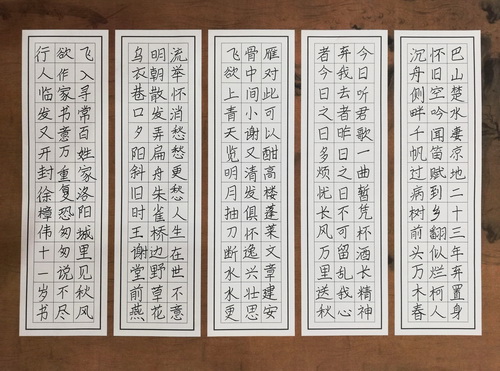 巴山楚水凄凉地二十三年弃置身
怀旧空吟闻笛赋到乡翻似烂柯人
沉舟侧畔千帆过病树前头万木春
今日听君歌一曲暂凭杯酒长精神
弃我去者昨日之日不可留乱我心
者今日之日多烦忧长风万里送秋
雁对此可以酣高楼蓬莱文章建安
骨中间小谢又清发俱怀逸兴壮思
飞欲上青天览明月抽刀断水水更
流举怀消愁愁更愁人生在世不意
明朝散发弄扁舟朱雀桥边野草花
乌衣巷口夕阳斜旧时王谢堂前燕
飞入寻常百姓家洛阳城里见秋风
欲作家书意万重复恐匆匆说不尽
行人临发又开封徐樟伟十一岁书